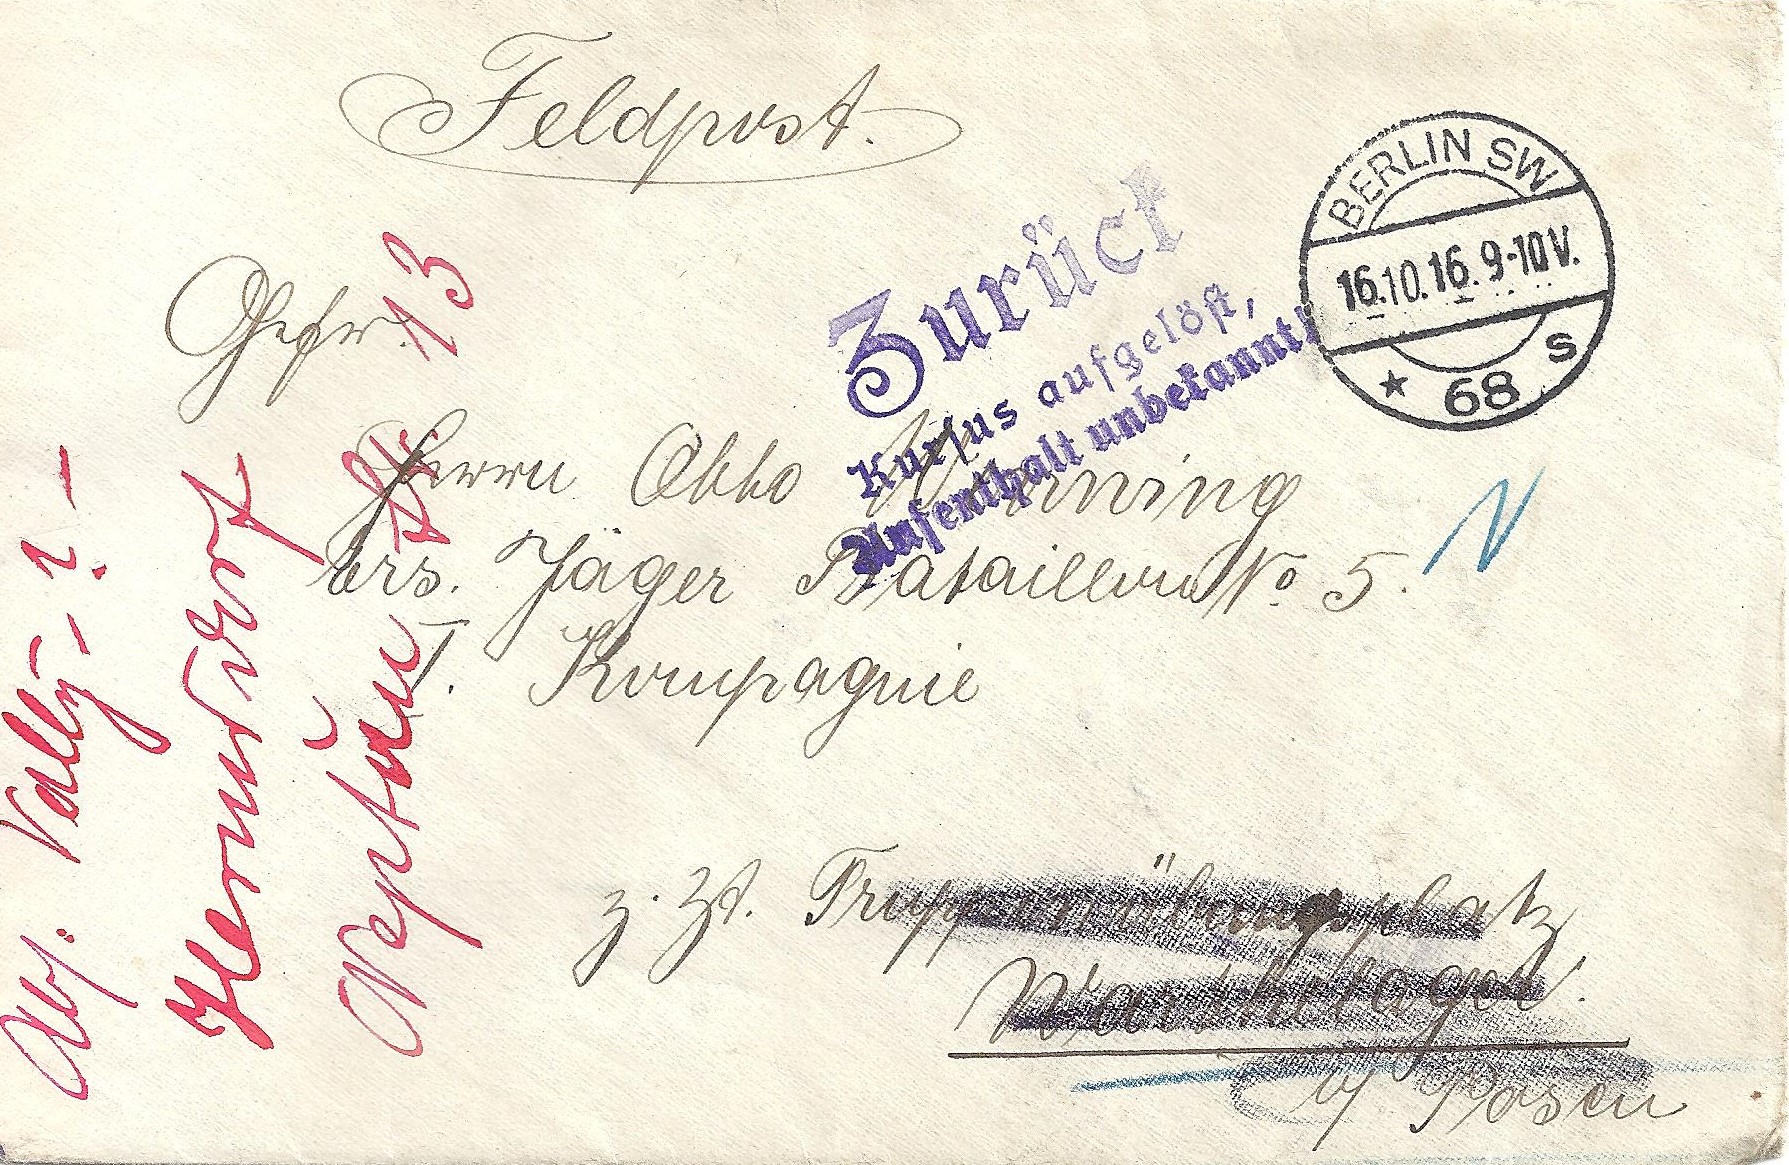 Feldpost.
BERLIN SW
16.10.16. 9-10V.
* 68 s
Zurück
Kursus aufgelöst,
Aufenthalt unbekannt!
Gefr.
13
Herrn Otto
Ers. Jäger Bataillon No 5.
I. Kompagnie
N
z. Zt. Truppenübungsplatz
Warthelager.
b/ Posen
Abs. Vally - ? -
Neptun